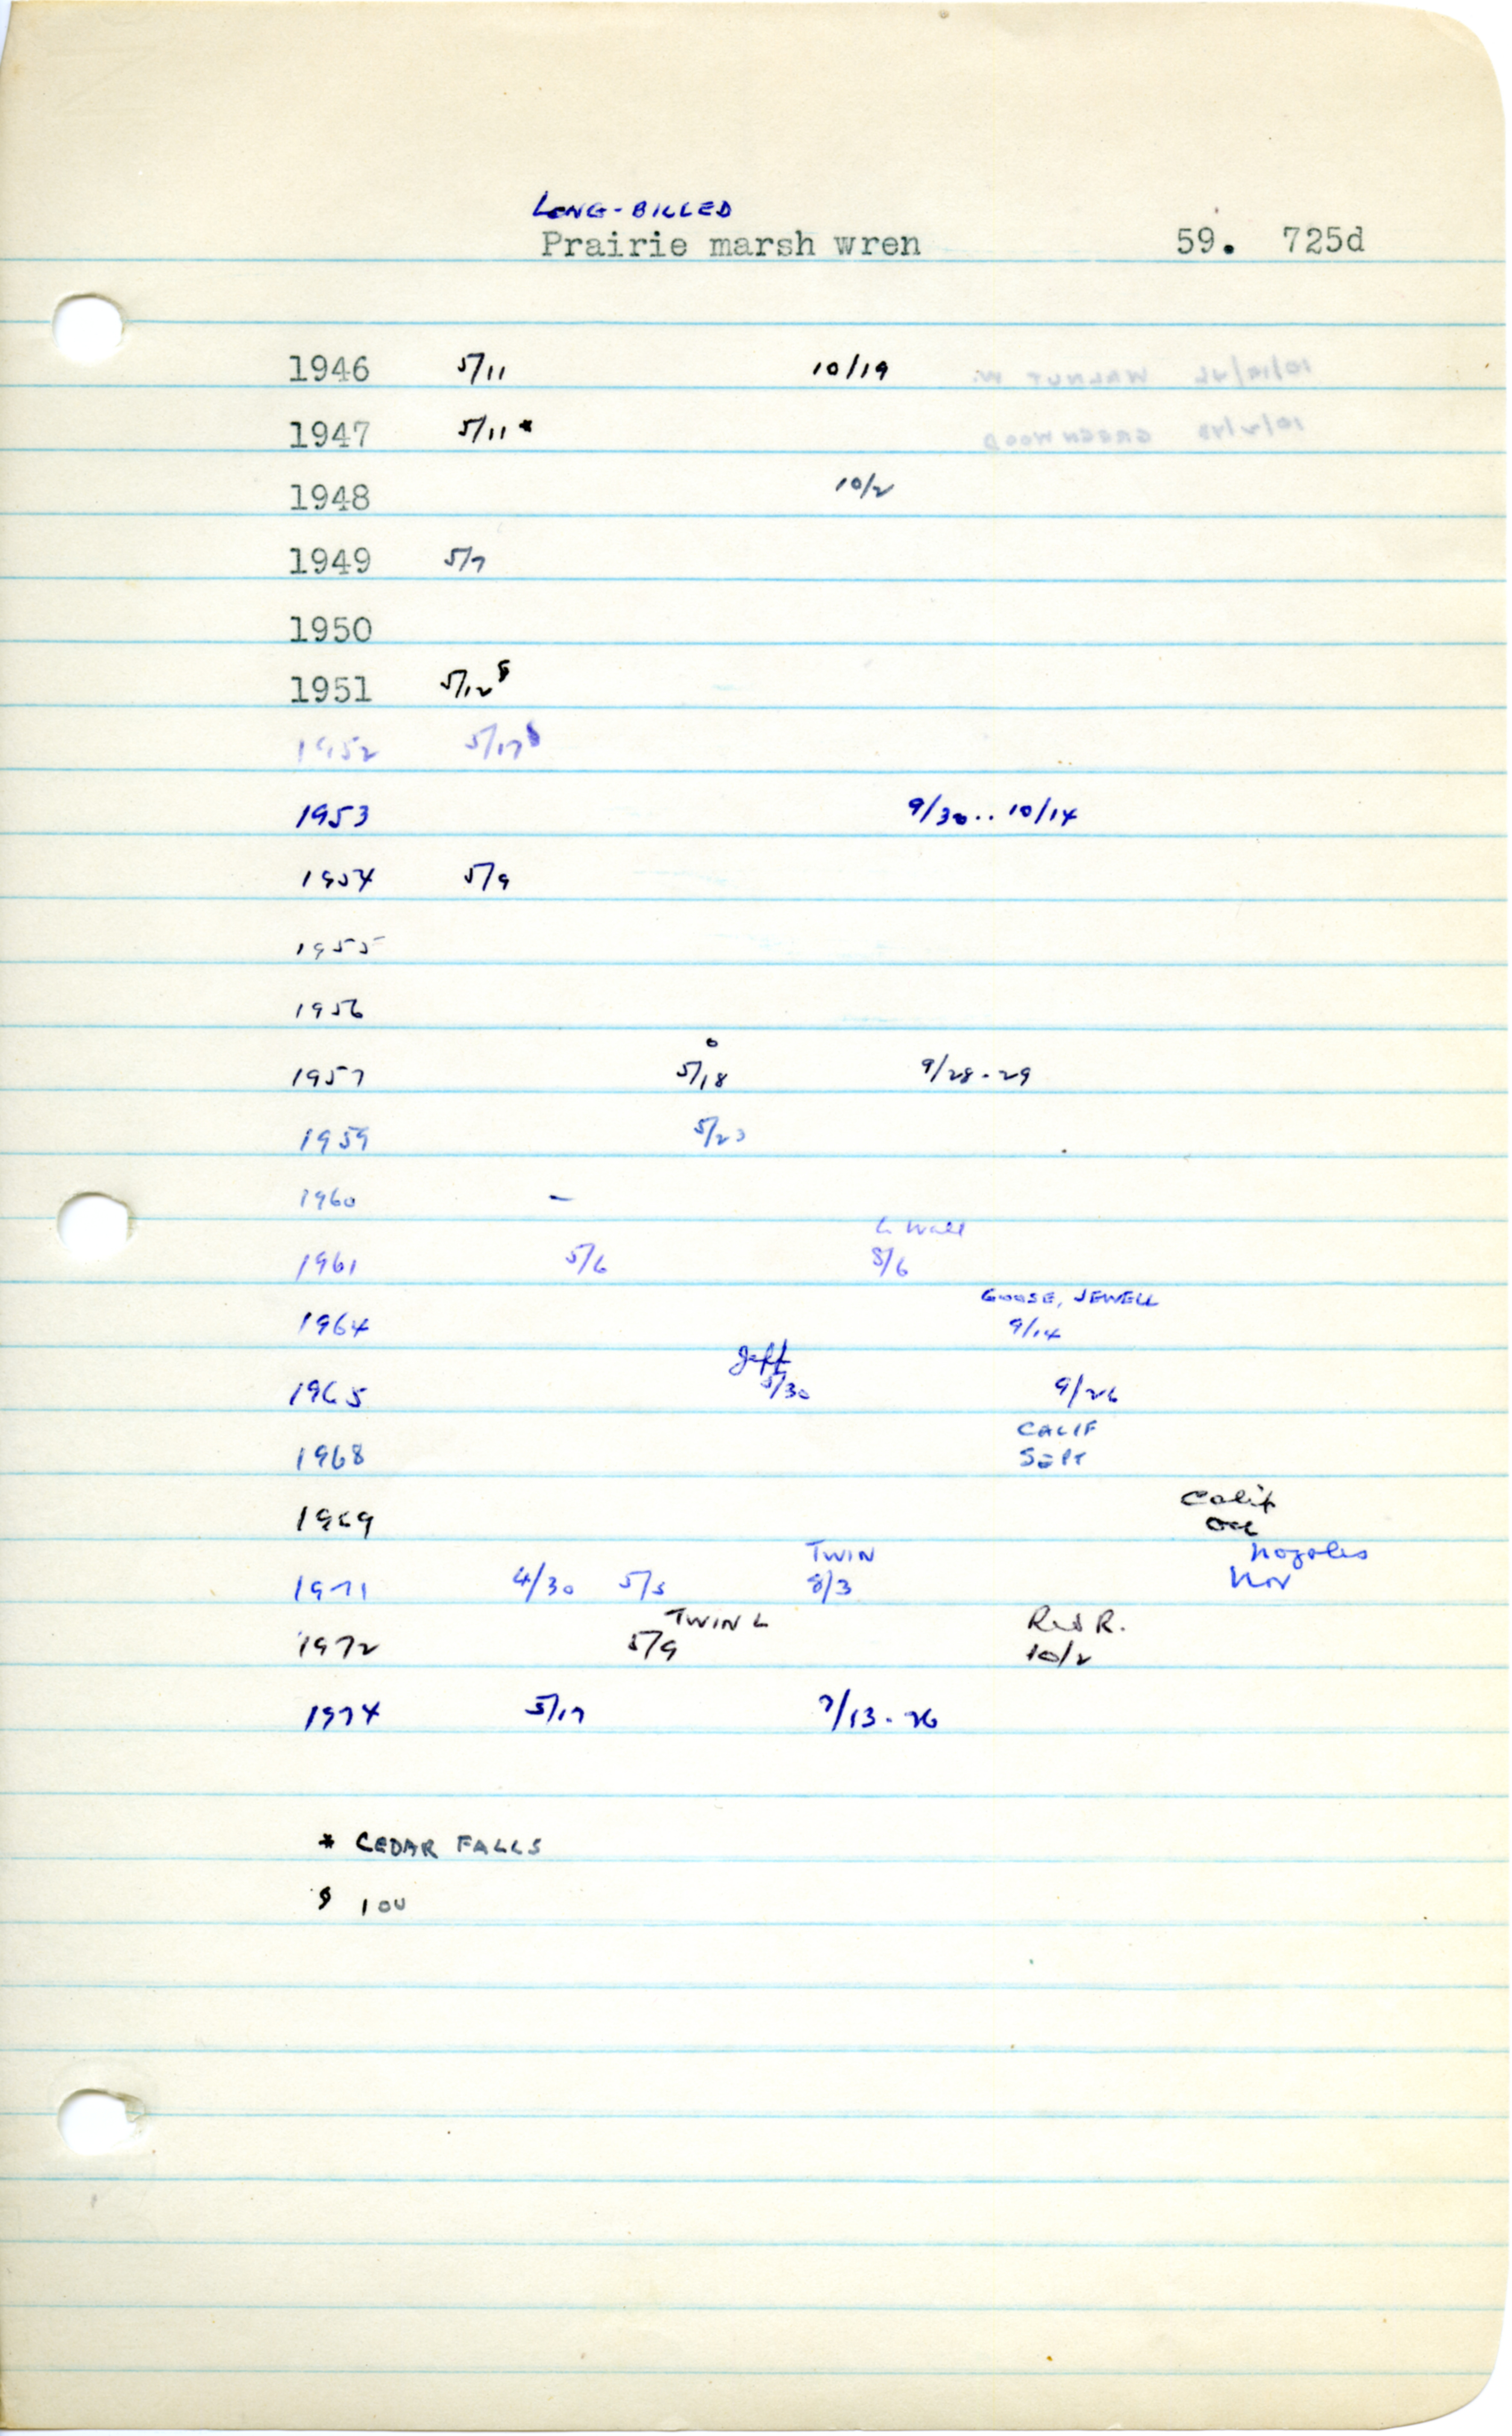 LONG-BILLED
Prairie marsh wren 59. 725d
1946 5/11 10/19
1947 5/11 *
1948 10/2
1949 5/7
1950
1951 5/12 §
1952 5/17 §
1953 9/30 .. 10/14
1954 5/9
1955
1956
1957 5/18 9/28-29
1959 5/23
1960 –
L Wall
1961 5/6 8/6
GOOSE, JEWELL
1964 9/14
Jeff
1965 5/30 9/26
CALIF
1968 SEPT
Calif
1969 Oct
TWIN Nogales
1971 4/30 5/5 8/3 Nov
TWIN L Red R.
1972 5/9 10/2
1974 5/17 7/13-26
* CEDAR FALLS
§ IOU